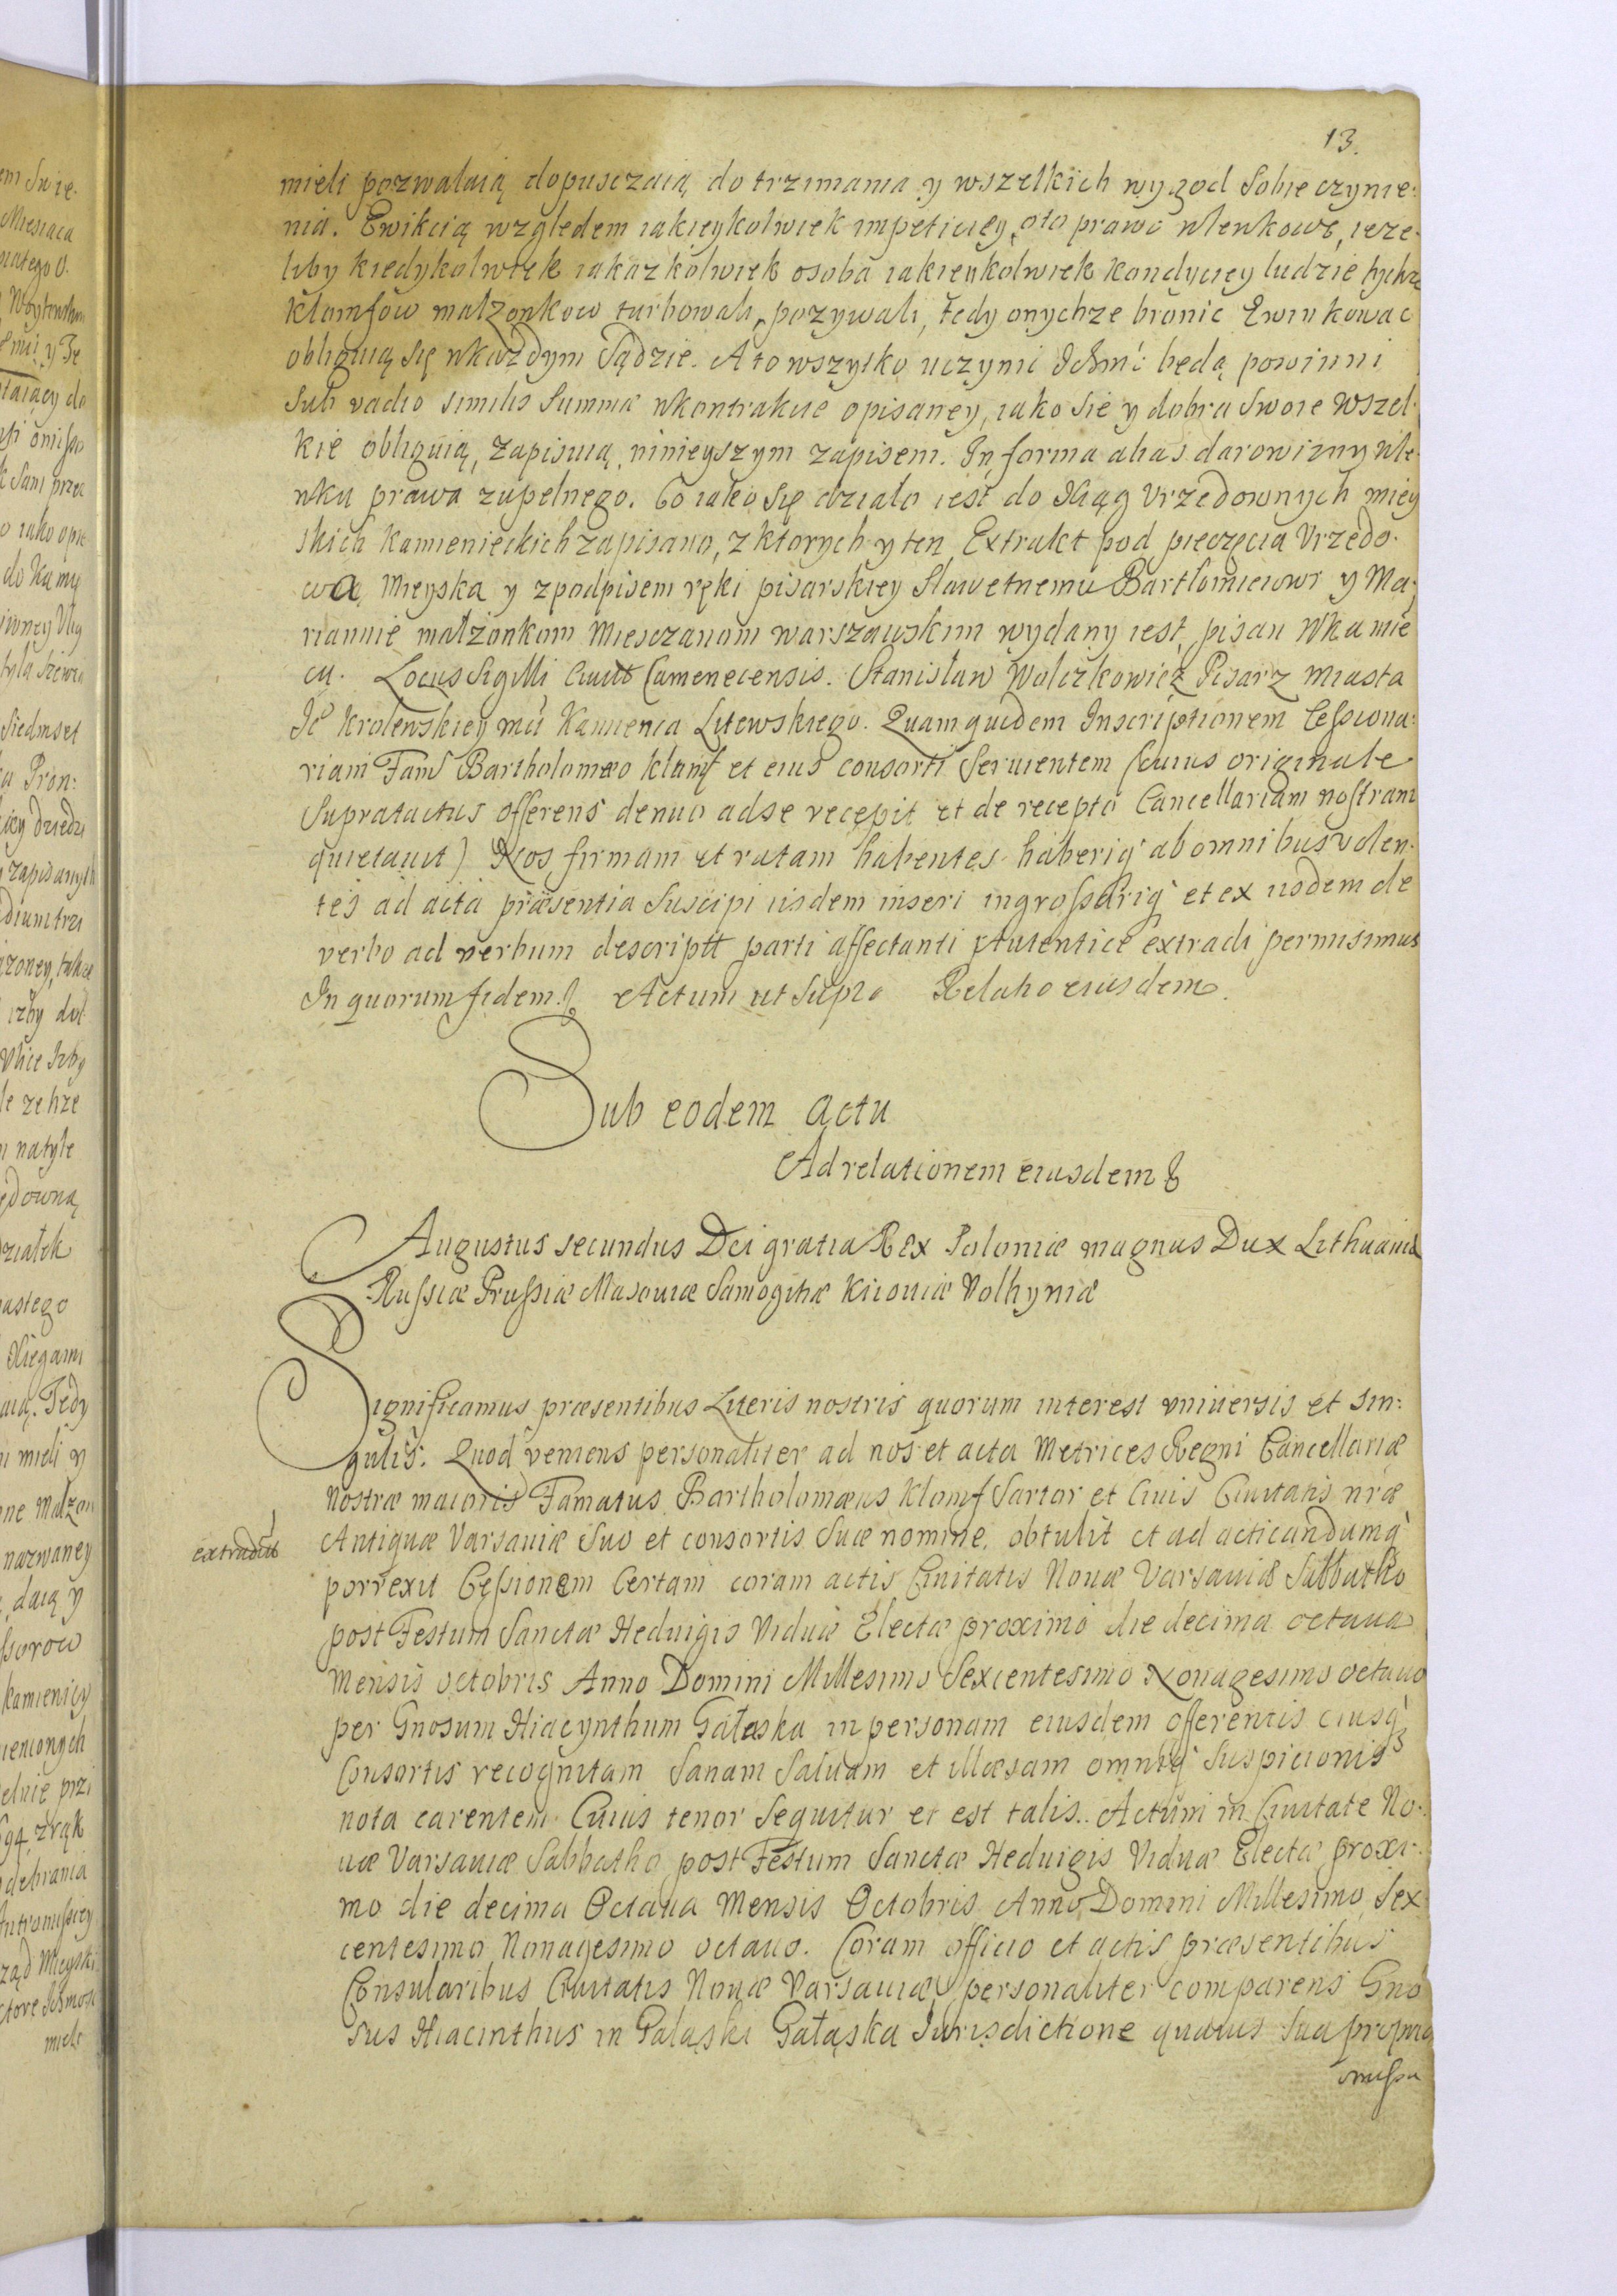 13.
mieli pozwalaią dopusczaią do trzimania y wszelkich wygod Sobie czynie:
nia. Ewikcią względem iakieykolwiek impeticiey, oto prawo wlenkowe, ieze-
liby kiedykolwiek iakazkolwiek osoba iakieykolwiek kondyciey ludzie tychze
Klomfow malzonkow turbowali, pozywali, tedy onychze bronic Ewinkowac
obliguią się wkażdym Sądzie. A to wszytko uczynic Ichmć będą powinni
Sub vadio similis Summæ wkontrakcie opisaney, iako sie y dobra swoie wszel-
kie obliguią, zapisuią, ninieyszym zapisem. In forma alias darowizny wle-
wku prawa zupelnego. Co iako się działo iest do Xiąg Vrzedownych miey
skich Kamienieckich zapisano, z ktorych y ten Extrakt pod pieczęcią Vrzedo-
wą Mieyska y zpodpisem ręki pisarskiey Slawetnemu Bartlomieiowi y Ma-
riannie małżonkom Miesczanom warszawskim wydany iest, pisan WKamie
cu. Locus Sigilli Ciuits Camenecensis. Stanisław Wolczkowicz Pisarz Miasta
Je° Krolewskiey mci Kamienca Litewskiego. Quam quidem Inscriptionem Cessiona-
riam Fam̃ Bartholomæo Klamf et eius consorti Seruientem (cuius originale
Supratactus offerens denuo ad se recepit et de recepto Cancellariam nostram
quietauit) Nos firmam et ratam habentes haberiq̀ ab omnibus volen-
tes ad acta præsentia Suscipi iisdem inseri ingrossariq̀ et ex iisdem de
verbo ad verbum descriptt parti affectanti Autentice extradi permisimus
In quorum fidem & Actum ut supra Relatio eiusdem.
Sub eodem Actu
Ad relationem eiusdem &
Augustus secundus Dei gratia Rex Poloniæ magnus Dux Lithuaniæ
Russiæ Prussiæ Masouiæ Samogitiæ Kiiouiæ Volhyniæ
Significamus præsentibus Literis nostris quorum interest vniuersis et sin:
gulis. Quod veniens personaliter ad nos et acta Metrices Regni Cancellariæ
Nostræ maioris Famatus Bartholomæus Klomf Sartor et Ciuis Ciuitatis nræ
extradit
Antiquæ Varsauiæ Suo et consortis Suæ nomine, obtulit et ad acticandumq̀
porrexit Cessionem Certam coram actis Ciuitatis Nouæ Varsauiæ Sabbatho
post Festum Sanctæ Heduigis Viduæ Electæ proximo die decima octaua
Mensis octobris Anno Domini Millesimo Sexcentesimo Nonagesimo octauo
per Gnosum Hiacynthum Gałąska in personam eiusdem offerentis eiusq̀
Consortis recognitam Sanam Saluam et illæsam omniq̀ Suspicionis
nota carentem Cuius tenor Sequitur et est talis. Actum in Ciuitate No-
uæ Varsauiæ Sabbatho post Festum Sanctæ Heduigis Viduæ Electæ proxi-
mo die decima Octaua Mensis Octobris Anno Domini Millesimo Sex-
centesimo Nonagesimo octauo. Coram officio et actis præsentibus
Consularibus Ciuitatis Nouæ Varsauiæ personaliter comparens Gno
sus Hiacinthus in Gałąski Gałąska Jurisdictione quauis Sua propria
omissa